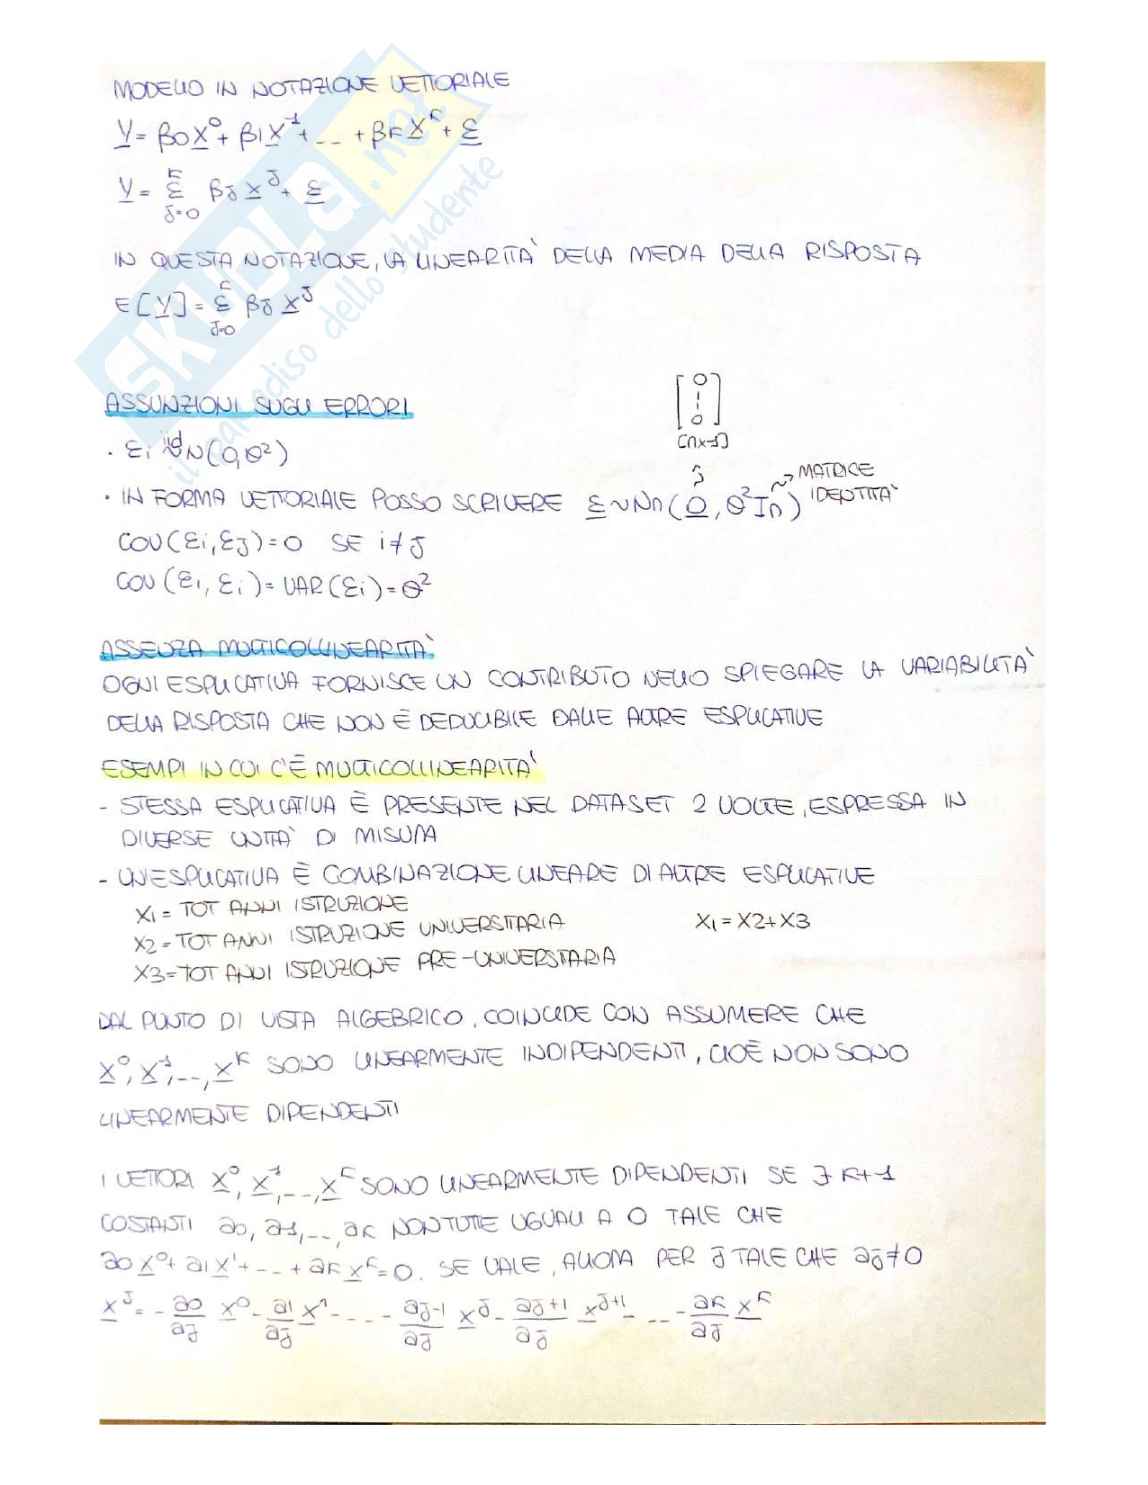 MODELLO IN NOTAZIONE VETTORIALE
Y = β0 X^0 + β1 X^1 + ... + βk X^k + ε
Y = Σ_{j=0}^{k} βj X^j + ε
IN QUESTA NOTAZIONE, LA LINEARITÀ DELLA MEDIA DELLA RISPOSTA
E[Y] = Σ_{j=0}^{k} βj X^j
ASSUNZIONI SUGLI ERRORI
[0 ¦ 0]
[nx1]
· εi iid~ N(0,σ²)
MATRICE
IDENTITÀ
· IN FORMA VETTORIALE POSSO SCRIVERE ε ~ Nn(0, σ² In)
COV(εi, εj) = 0 SE i ≠ j
COV(εi, εi) = VAR(εi) = σ²
ASSENZA MULTICOLLINEARITÀ
OGNI ESPLICATIVA FORNISCE UN CONTRIBUTO NELLO SPIEGARE LA VARIABILITÀ
DELLA RISPOSTA CHE NON È DEDUCIBILE DALLE ALTRE ESPLICATIVE
ESEMPI IN CUI C'È MULTICOLLINEARITÀ
- STESSA ESPLICATIVA È PRESENTE NEL DATASET 2 VOLTE, ESPRESSA IN
DIVERSE UNITÀ DI MISURA
- UN'ESPLICATIVA È COMBINAZIONE LINEARE DI ALTRE ESPLICATIVE
X1 = TOT ANNI ISTRUZIONE
X2 = TOT ANNI ISTRUZIONE UNIVERSITARIA X1 = X2 + X3
X3 = TOT ANNI ISTRUZIONE PRE-UNIVERSITARIA
DAL PUNTO DI VISTA ALGEBRICO, COINCIDE CON ASSUMERE CHE
X^0, X^1, ..., X^k SONO LINEARMENTE INDIPENDENTI, CIOÈ NON SONO
LINEARMENTE DIPENDENTI
I VETTORI X^0, X^1, ..., X^k SONO LINEARMENTE DIPENDENTI SE ∃ k+1
COSTANTI a0, a1, ..., ak NON TUTTE UGUALI A 0 TALE CHE
a0 X^0 + a1 X^1 + ... + ak X^k = 0. SE VALE, ALLORA PER j TALE CHE aj ≠ 0
X^j = - a0/aj X^0 - a1/aj X^1 - ... - aj-1/aj X^j - aj+1/aj X^j+1 - ... - ak/aj X^k
SKUOLA.net
il paradiso dello studente